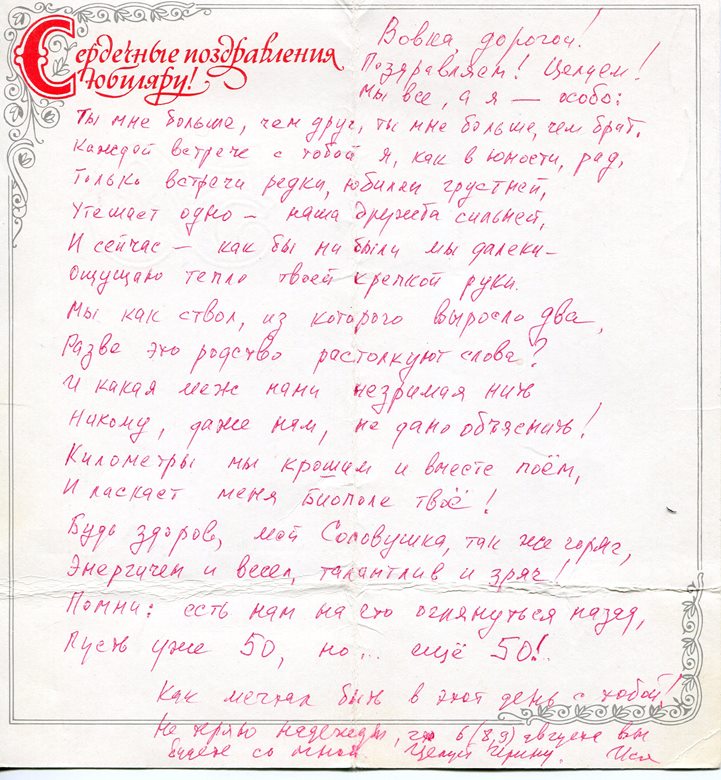 Сердечные поздравления
юбиляру!
Вовка, дорогой!
Поздравляем! Целуем!
Мы все, а я — особо:
Ты мне больше, чем друг, ты мне больше, чем брат,
Каждой встрече с тобой я, как в юности, рад,
Только встречи редки, юбилеи грустней,
Утешает одно — наша дружба сильней,
И сейчас — как бы ни были мы далеки —
Ощущаю тепло твоей крепкой руки.
Мы как ствол, из которого выросло два,
Разве это родство растолкуют слова?
И какая меж нами незримая нить
Никому, даже нам, не дано объяснить!
Километры мы крошим и вместе поём,
И ласкает меня Биополе твоё!
Будь здоров, мой Соловушка, так же горяч,
Энергичен и весел, талантлив и зряч!
Помни: есть нам на что оглянуться назад,
Пусть уже 50, но... ещё 50!..
Как мечтал быть в этот день с тобой!
Не теряю надежды, что 6 (8,9) августа вы
будете со мной. Целуй Ирину. Ися